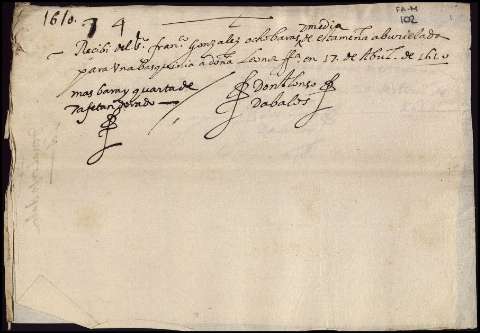 1610.
7 4
FA-M
102
Recibi del Sr. franco. Gonzales ocho baras y media
de estameña aburielada
para una basquiña a doña
en 17. de Abril. de 1610
mas bara y quarta de
tafetan
Don Alonso
Dabalos